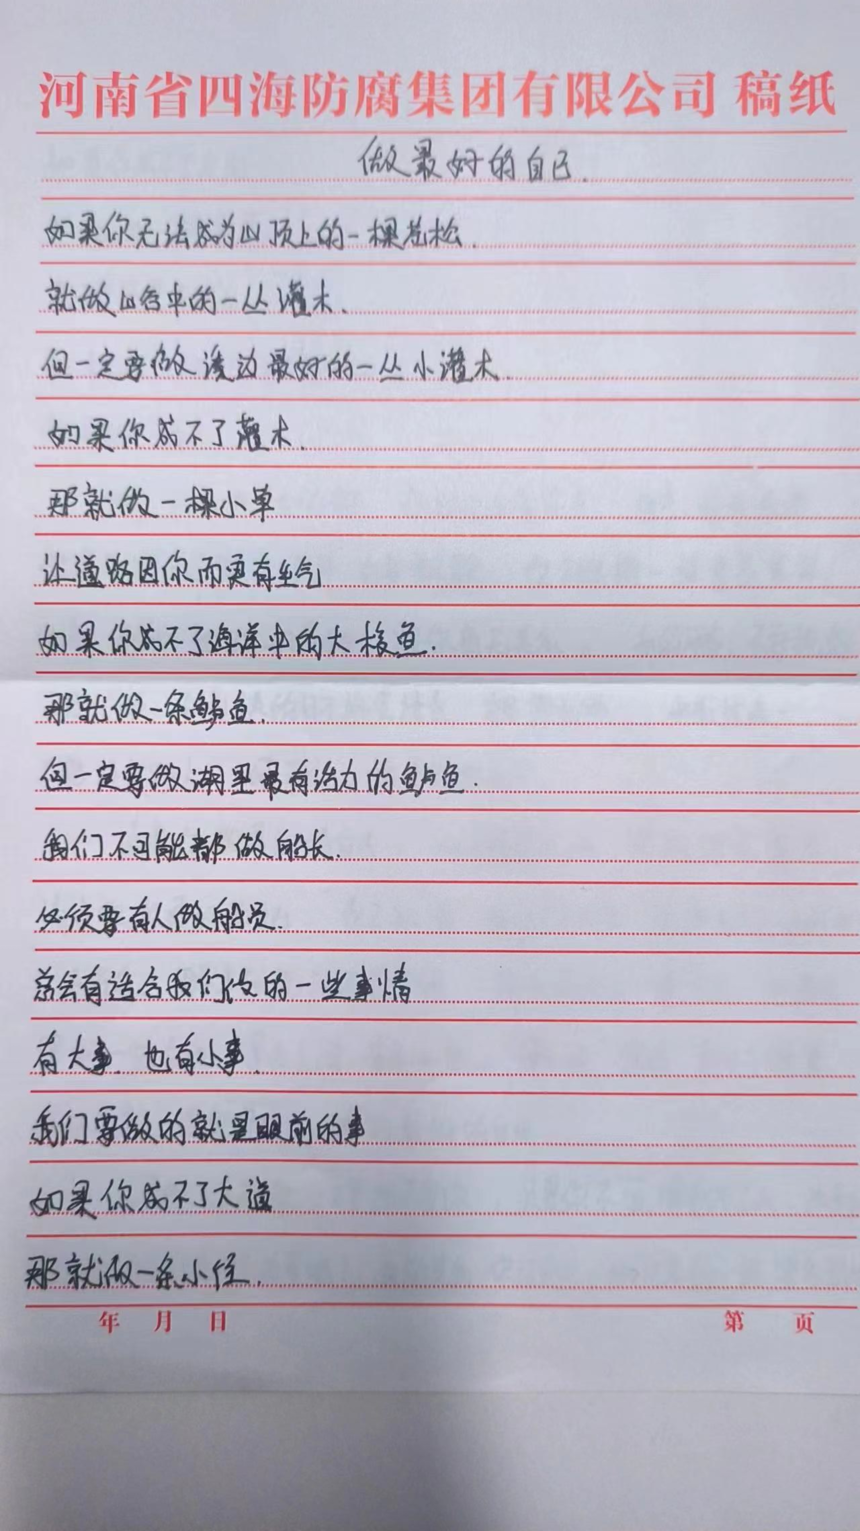 河南省四海防腐集团有限公司 稿纸
做最好的自己.
如果你无法成为山顶上的一棵苍松.
就做山谷中的一丛灌木.
但一定要做溪边最好的一丛小灌木.
如果你成不了灌木.
那就做一棵小草
让道路因你而更有生气
如果你成不了海洋中的大梭鱼.
那就做一条鲈鱼.
但一定要做湖里最有活力的鲈鱼.
我们不可能都做船长.
必须要有人做船员.
总会有适合我们做的一些事情
有大事.也有小事.
我们要做的就是眼前的事
如果你成不了大道
那就做一条小径.
年 月 日 第 页